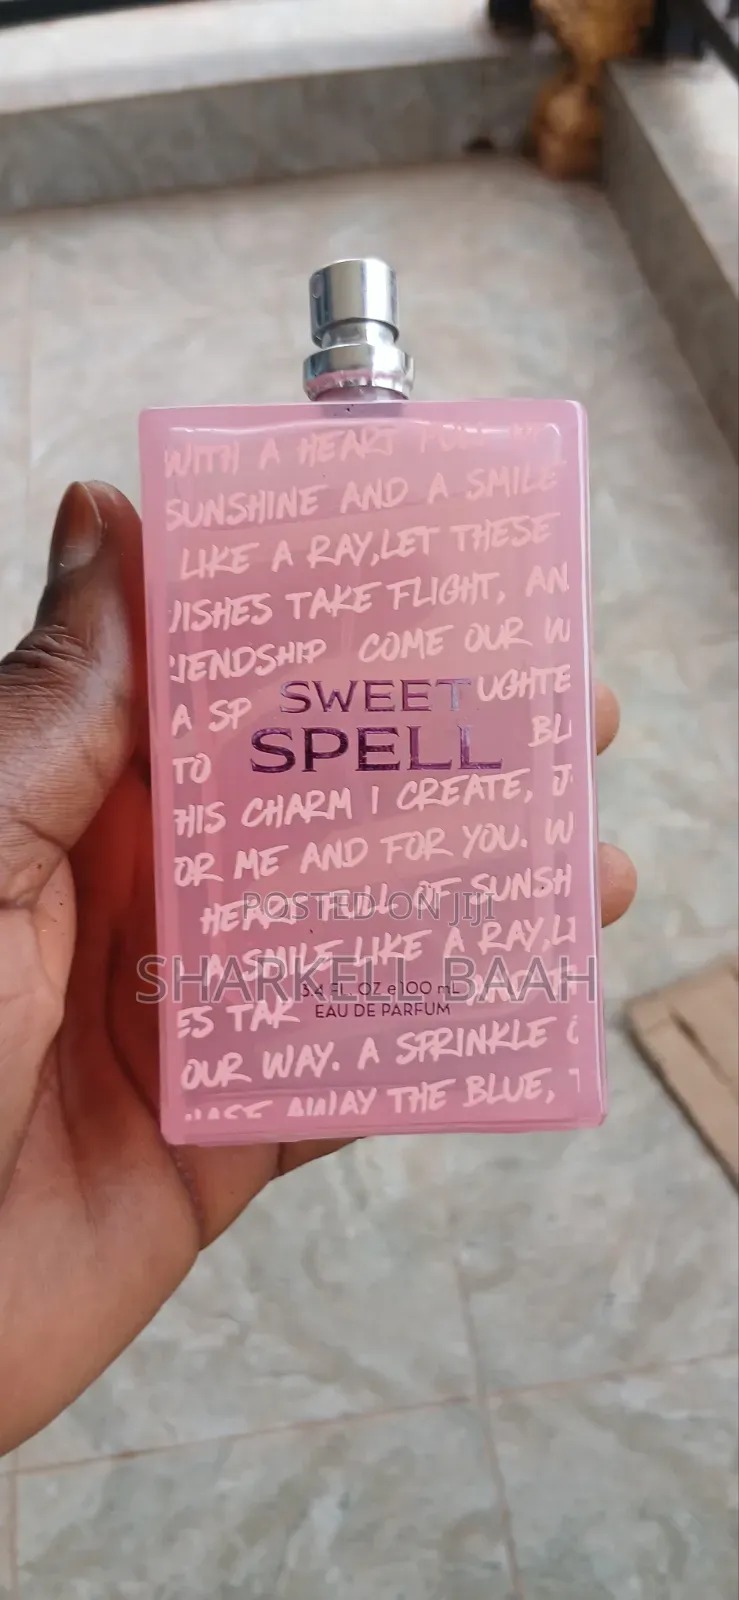 WITH A HEART
SUNSHINE AND A SMILE
LIKE A RAY,LET THESE
ISHES TAKE FLIGHT, AN
IENDSHIP COME OUR W
A SP SWEET UGHTE
SPELL BL
TO
HIS CHARM I CREATE, J
OR ME AND FOR YOU. W
HEART FULL OF SUNSH
POSTED ON JIJI
A SMILE LIKE A RAY,L
SHARKELL BAAH
3.4 FL. OZ e 100 mL
ES TAK
EAU DE PARFUM
OUR WAY. A SPRINKLE
AWAY THE BLUE, T